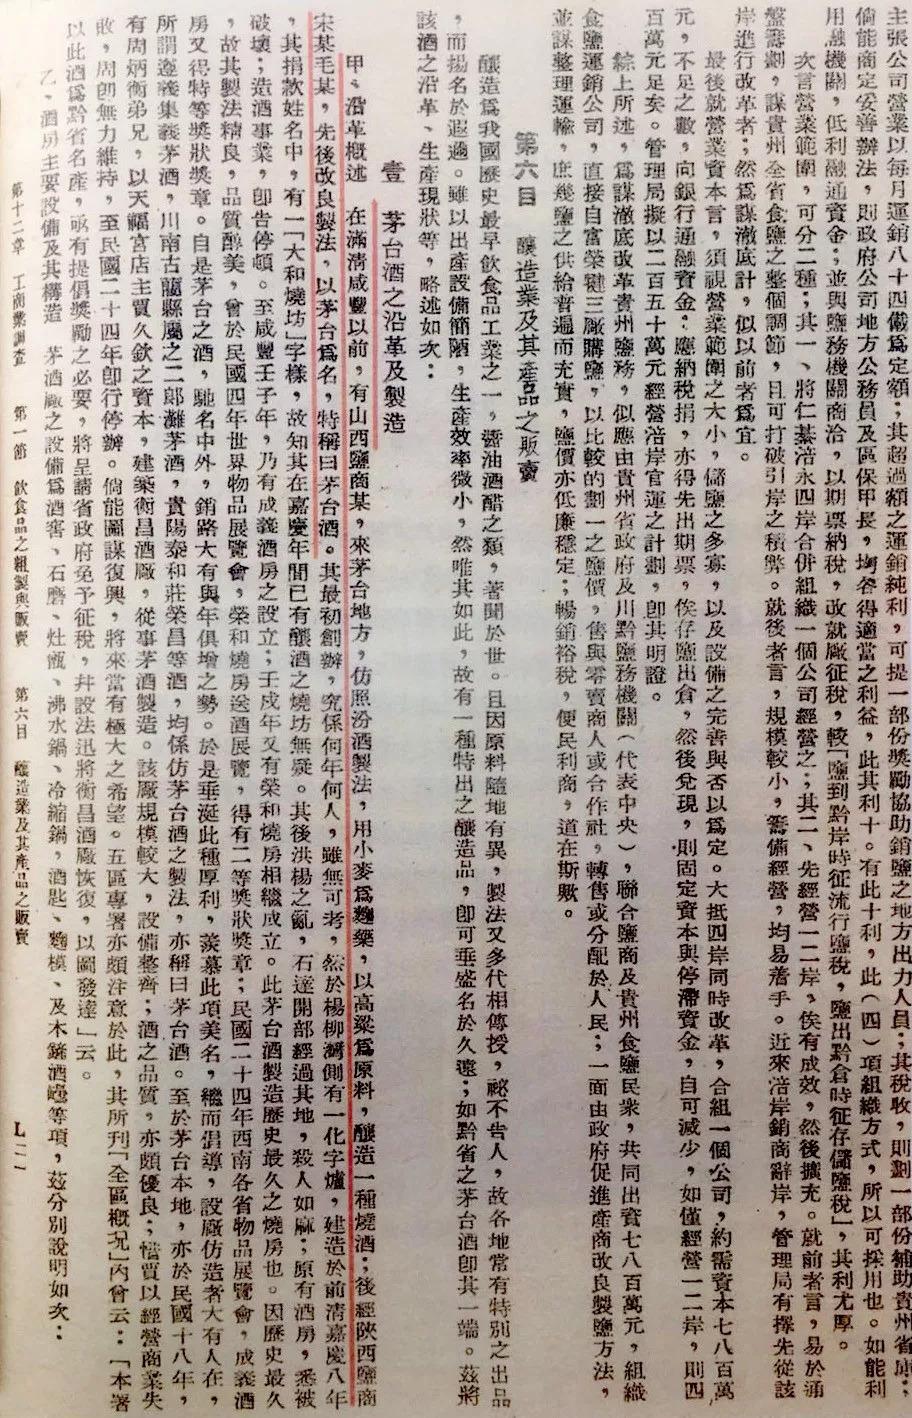 主張公司營業以每月運銷八十四儎爲定額；其超過額之運銷純利，可提一部份獎勵協助銷鹽之地方出力人員；其稅收，則劃一部份補助貴州省庫；
倘能商定妥善辦法，則政府公司地方公務員及區保甲長，均各得適當之利益，此其利十。有此十利，此（四）項組織方式，所以可採用也。如能利
用融機關，低利融通資金；並與鹽務機關商洽，以期票納稅，改就廠征稅，較「鹽到黔岸時征流行鹽稅，鹽出黔倉時征存儲鹽稅」，其利尤厚。
次言營業範圍，可分二種；其一、將仁綦涪永四岸合併組織一個公司經營之；其二、先經營一二岸，俟有成效，然後擴充。就前者言，易於通
盤籌劃，謀貴州全省食鹽之整個調節，且可打破引岸之積弊。就後者言，規模較小，籌備經營，均易着手。近來涪岸銷商辭岸，管理局有擇先從該
岸進行改革者；然爲謀澈底計，似以前者爲宜。
最後就營業資本言，須視營業範圍之大小，儲鹽之多寡，以及設備之完善與否以爲定。大抵四岸同時改革，合組一個公司，約需資本七八百萬
元，不足之數，向銀行通融資金：應納稅捐，亦得先出期票，俟存鹽出倉，然後兌現，則固定資本與停滯資金，自可減少，如僅經營一二岸，則四
百萬元足矣。管理局擬以二百五十萬元經營涪岸官運之計劃，卽其明證。
綜上所述，爲謀澈底改革貴州鹽務，似應由貴州省政府及川黔鹽務機關（代表中央），聯合鹽商及貴州食鹽民衆，共同出資七八百萬元，組織
食鹽運銷公司，直接自富榮犍三廠購鹽，以比較的劃一之鹽價，售與零賣商人或合作社，轉售或分配於人民；一面由政府促進產商改良製鹽方法，
並謀整理運輸，庶幾鹽之供給普遍而充實，鹽價亦低廉穩定；暢銷裕稅，便民利商，道在斯歟。
第六目　釀造業及其產品之販賣
釀造爲我國歷史最早飲食品工業之一，醬油酒醋之類，著聞於世。且因原料隨地有異，製法又多代相傳授，祕不告人，故各地常有特別之出品
，而揚名於遐邇。雖以出產設備簡陋，生產效率微小，然唯其如此，故有一種特出之釀造品，卽可垂盛名於久遠；如黔省之茅台酒卽其一端。茲將
該酒之沿革、生產現狀等，略述如次：
壹　茅台酒之沿革及製造
甲、沿革概述　在滿清咸豐以前，有山西鹽商某，來茅台地方，仿照汾酒製法，用小麥爲麴藥，以高粱爲原料，釀造一種燒酒；後經陜西鹽商
宋某毛某，先後改良製法，以茅台爲名，特稱曰茅台酒。其最初創辦，究係何年何人，雖無可考，然於楊柳灣側有一化字爐，建造於前清嘉慶八年
，其捐款姓名中，有「大和燒坊」字樣，故知其在嘉慶年間已有釀酒之燒坊無疑。其後洪楊之亂，石達開部經過其地，殺人如麻；原有酒房，悉被
破壞；造酒事業，卽告停頓。至咸豐壬子年，乃有成義酒房之設立；壬戌年又有榮和燒房相繼成立。此茅台酒製造歷史最久之燒房也。因歷史最久
，故其製法精良，品質醇美，曾於民國四年世界物品展覽會，榮和燒房送酒展覽，得有二等獎狀獎章；民國二十四年西南各省物品展覽會，成義酒
房又得特等獎狀獎章。自是茅台之酒，馳名中外，銷路大有與年俱增之勢。於是垂涎此種厚利，羨慕此項美名，繼而倡導，設廠仿造者大有人在，
所謂遵義集義茅酒，川南古藺縣屬之二郎灘茅酒，貴陽泰和莊榮昌等酒，均係仿茅台酒之製法，亦稱曰茅台酒。至於茅台本地，亦於民國十八年，
有周炳衡弟兄，以天福宮店主賈久欽之資本，建築衡昌酒廠，從事茅酒製造。該廠規模較大，設備整齊；酒之品質，亦頗優良；惜賈以經營商業失
敗，周卽無力維持，至民國二十四年卽行停辦。倘能圖謀復興，將來當有極大之希望。五區專署亦頗注意於此，其所刊「全區概況」內曾云：「本署
以此酒爲黔省名產，亟有提倡獎勵之必要，將呈請省政府免予征稅，幷設法迅將衡昌酒廠恢復，以圖發達」云。
乙、酒房主要設備及其構造　茅酒廠之設備爲酒窖、石磨、灶甑、沸水鍋、冷縮鍋，酒匙、麴模、及木銚酒嶁等項，茲分別說明如次：
第十二章　工商業調查　第一節　飲食品之組製與販賣　第六目　釀造業及其產品之販賣